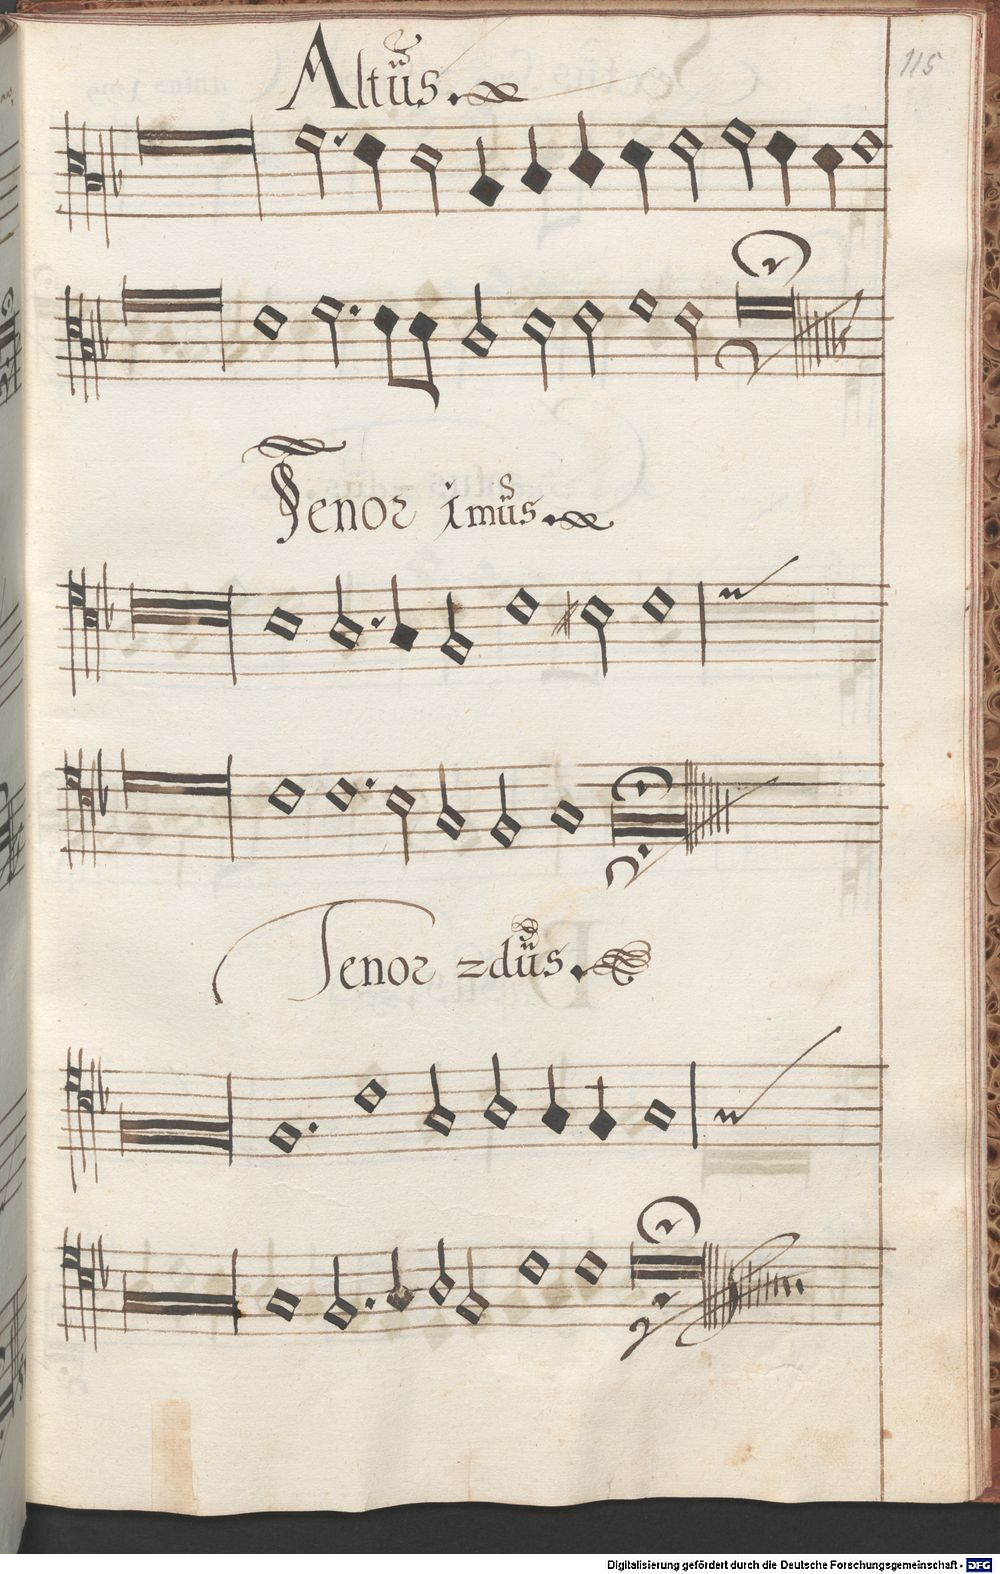 115
Altus.
Tenor imus.
Tenor 2dus.
Digitalisierung gefördert durch die Deutsche Forschungsgemeinschaft - DFG